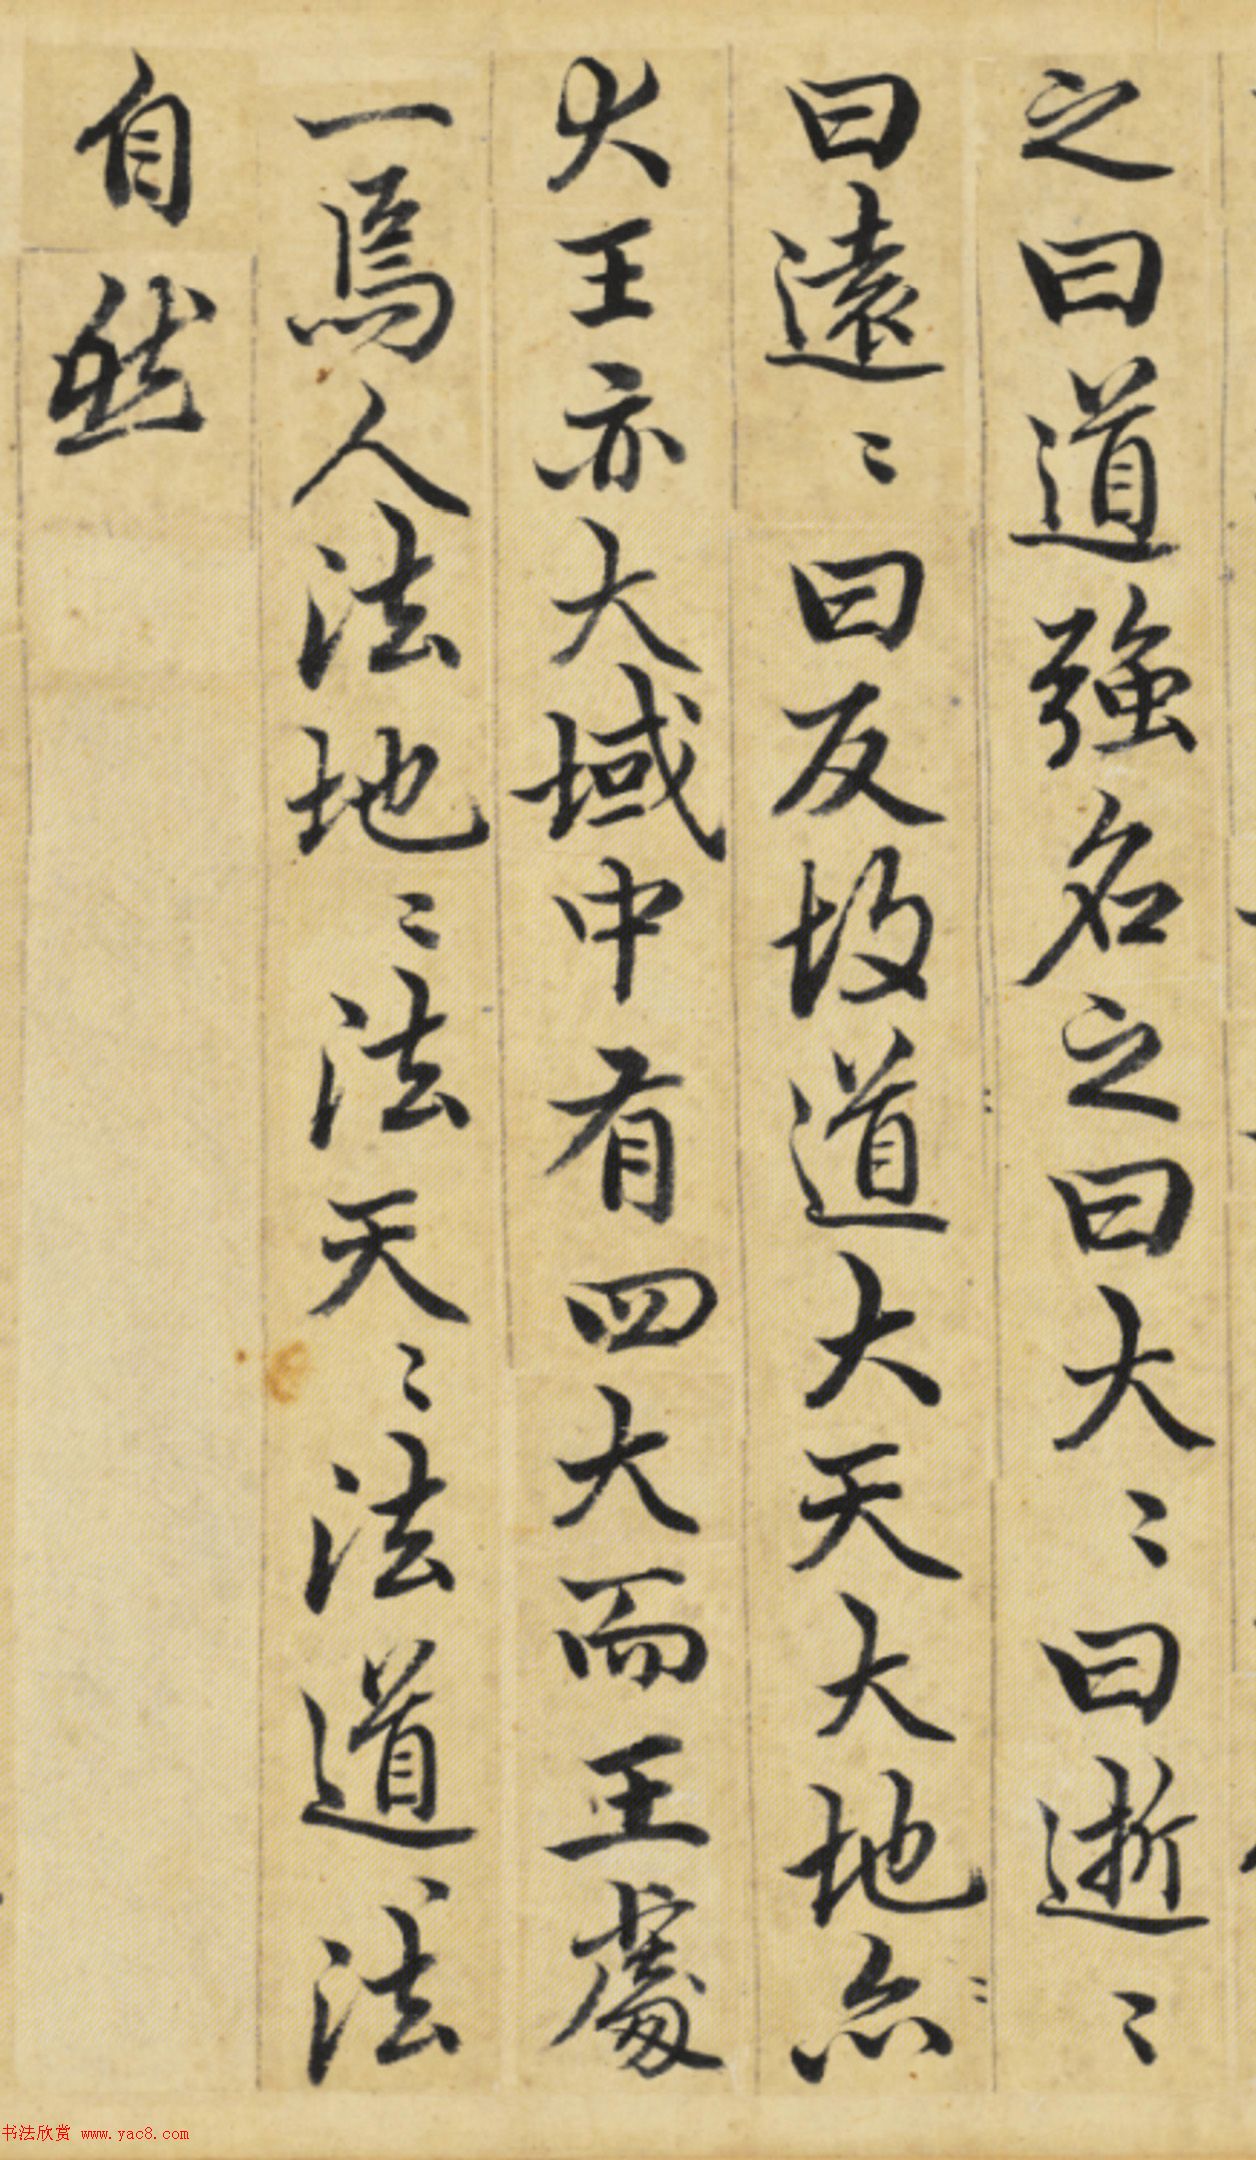 之曰道強名之曰大〻曰逝〻
曰遠〻曰反故道大天大地亦
大王亦大域中有四大而王處
一焉人法地〻法天〻法道〻法
自然
书法欣赏 www.yac8.com